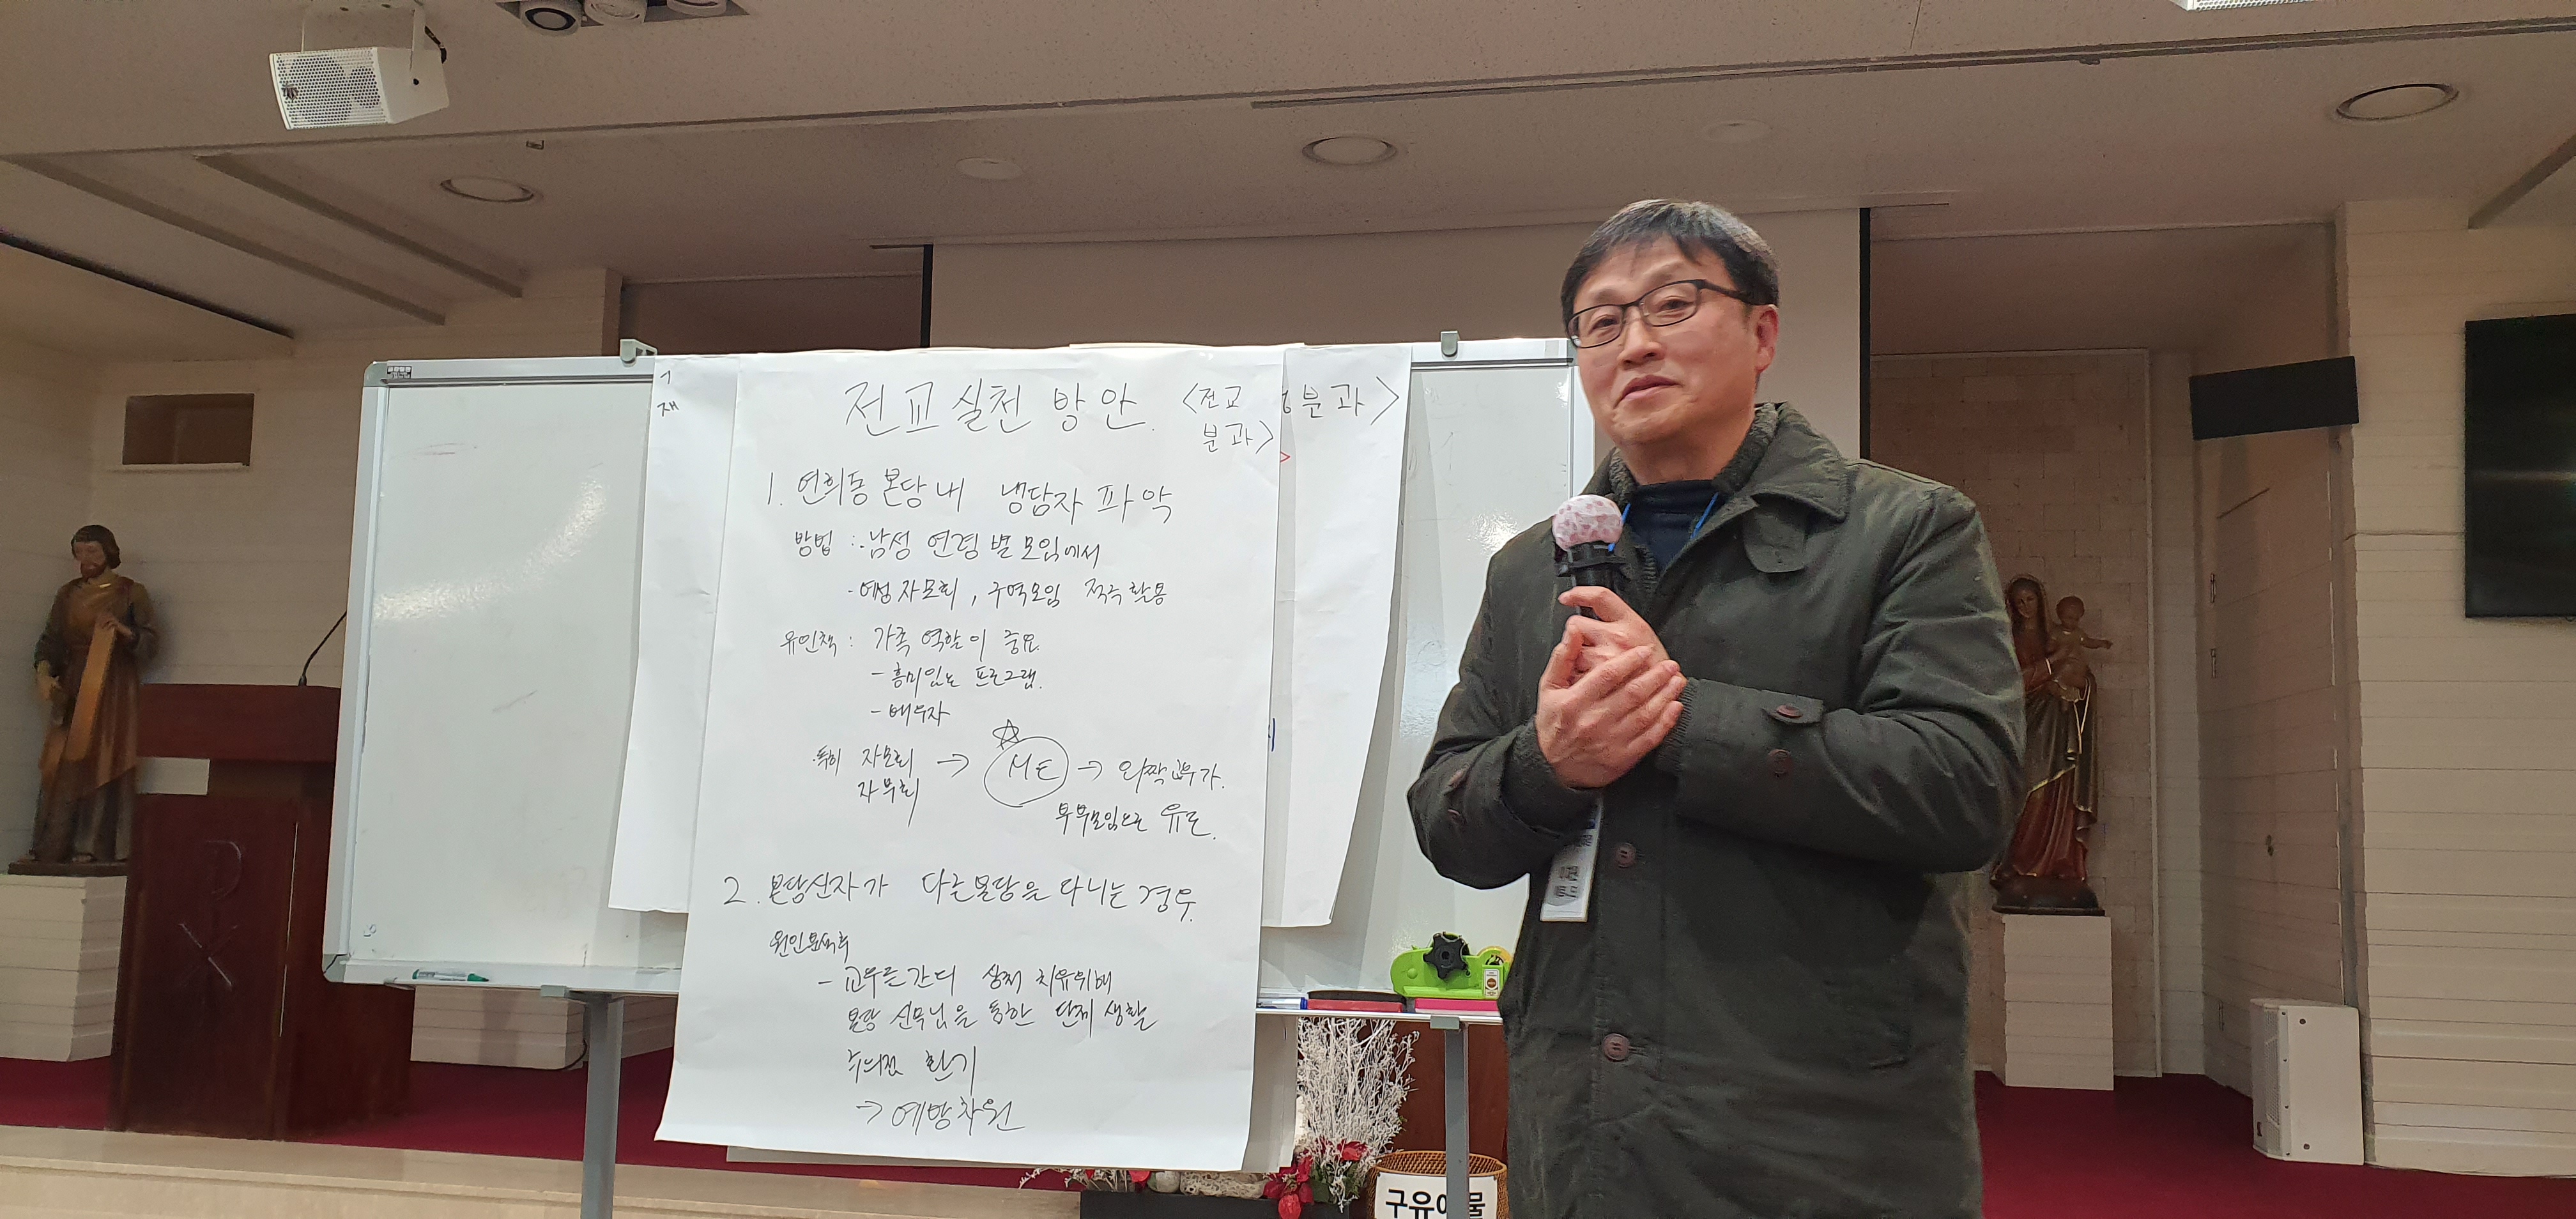 전교 실천 방안. <전교
분과>
분과>
재
1. 연희동 본당 내 냉담자 파악
방법 : ·남성 연령별 모임에서
·여성 자모회, 구역모임 적극 활용
유인책 : 가족 역할이 중요
- 흥미있는 프로그램.
- 배우자
·특히 자모회
자부회
→ ☆ ME → 외짝교우가.
부부모임으로 유도.
2. 본당신자가 다른 본당을 다니는 경우.
원인분석후
- 교우들간의 상처 치유위해
본당 신부님을 통한 단체 생활
주의점 환기
→ 예방차원
구유예물